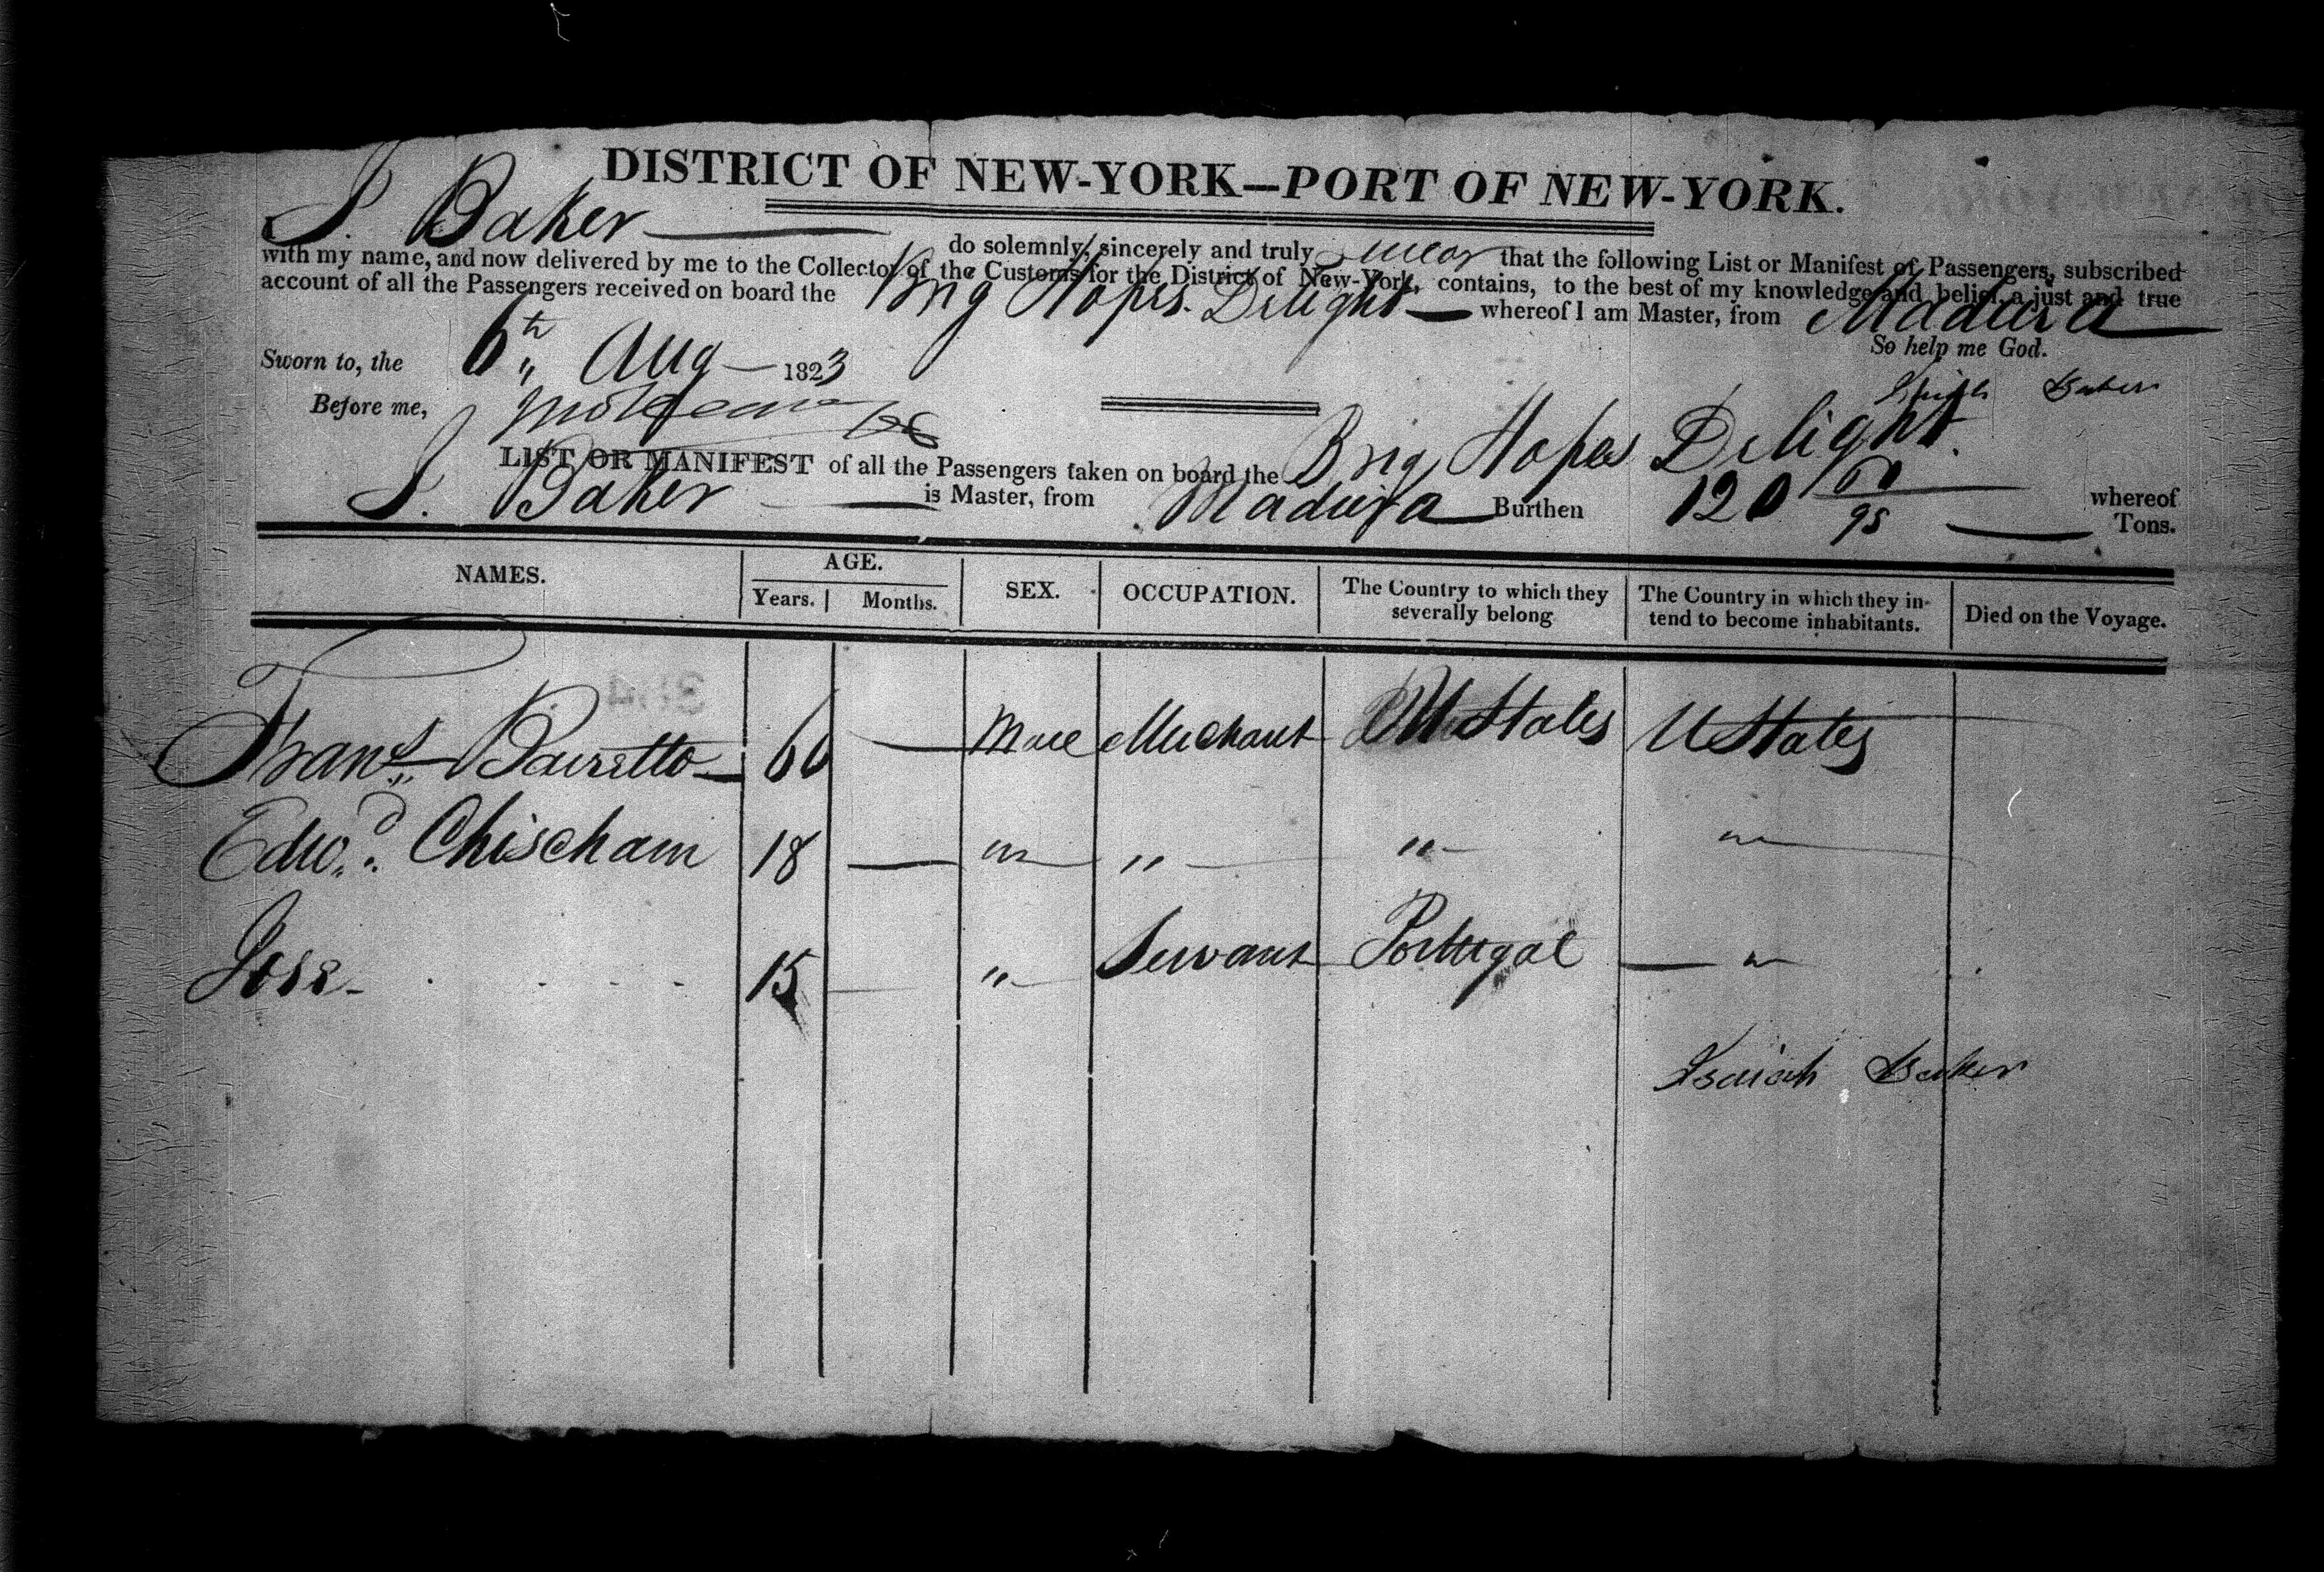 DISTRICT OF NEW-YORK—PORT OF NEW-YORK.
I. Baker do solemnly, sincerely and truly swear that the following List or Manifest of Passengers, subscribed
with my name, and now delivered by me to the Collector of the Customs for the District of New-York, contains, to the best of my knowledge and belief, a just and true
account of all the Passengers received on board the Brig Hopes Delight whereof I am Master, from Madeira
So help me God.
Sworn to, the 6th Aug 1823
Isaiah Baker
Before me,
LIST OR MANIFEST of all the Passengers taken on board the Brig Hopes Delight whereof
I. Baker is Master, from Madeira Burthen 120 60/95 Tons.
NAMES. AGE. Years. Months. SEX. OCCUPATION. The Country to which they severally belong The Country in which they intend to become inhabitants. Died on the Voyage.
Frans. Barretto 60 — Male Merchant U States U States
Edwd. Chischam 18 — " " " "
Jose 15 — " Servant Portugal — "
Isaiah Baker